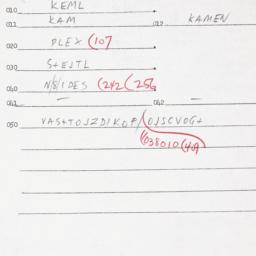 010 KEML
011 KAM 012 KAMEN
020 PLEX (107
030 S+EJTL
040 N/S/IDES (242 (256
041 — 042 —
050 VAS+TOJZDIKOP/OJSCVOG+
038010 (409